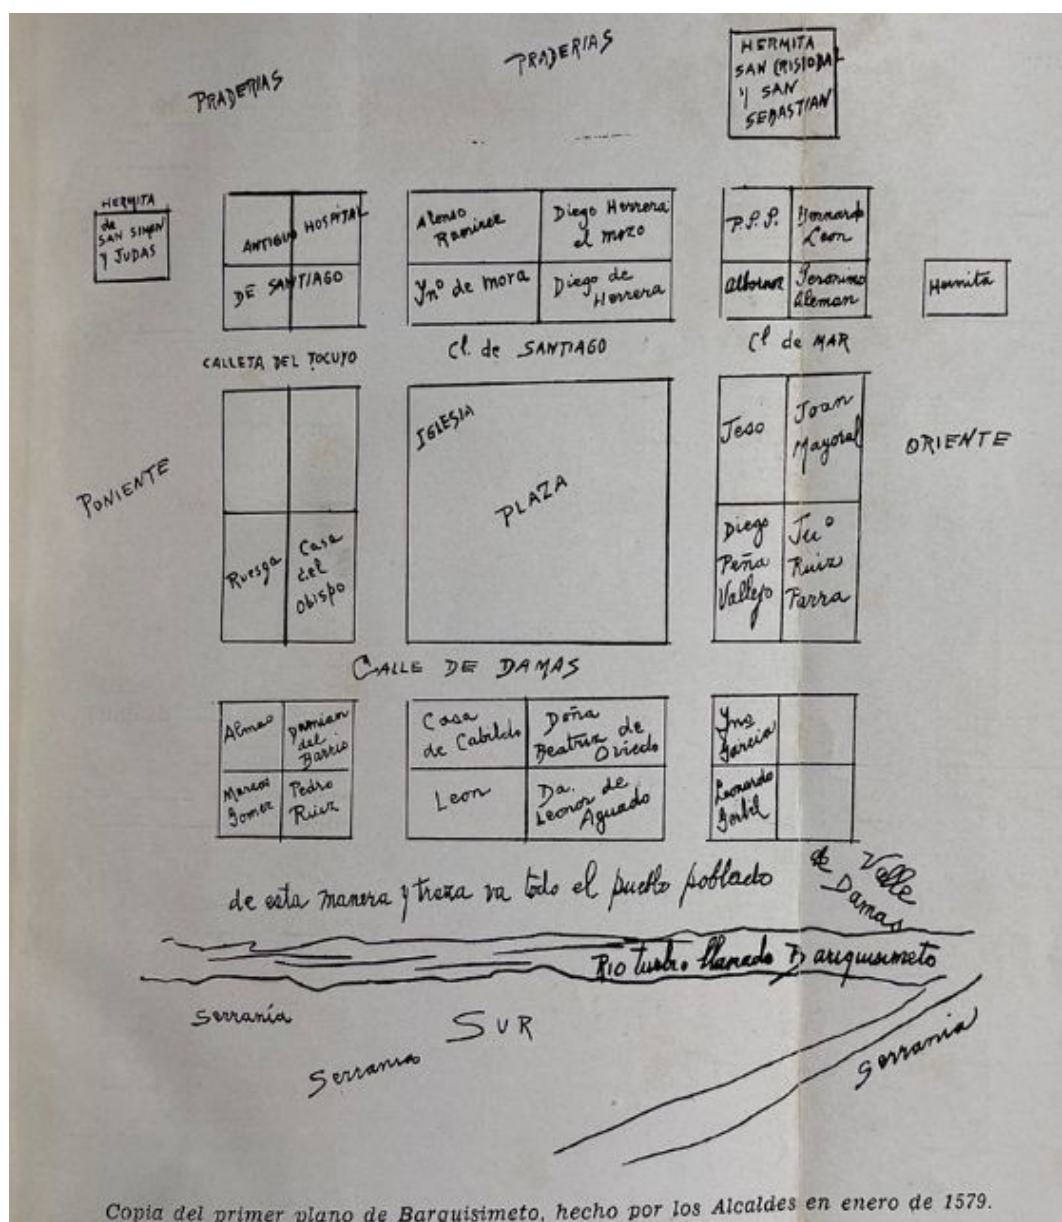 PRADERIAS
PRADERIAS
HERMITA
SAN CRISTOBAL
Y SAN
SEBASTIAN
HERMITA
de
SAN SIMON
Y JUDAS
ANTIGUO HOSPITAL
DE SANTIAGO
Alonso
Ramirez
Diego Herrera
el mozo
Ynº de mora
Diego de
Herrera
P.P.P.
Bernardo
Leon
Albornoz
Jeronimo
Aleman
Hermita
CALLETA DEL TOCUYO
Cl. de SANTIAGO
Cl de MAR
PONIENTE
Ruesga
Casa
del
Obispo
IGLESIA
PLAZA
Joan
Mayoral
Diego
Peña
Vallejo
Juº
Ruiz
Parra
ORIENTE
CALLE DE DAMAS
Almao
Damian
del
Barrio
Marcos
Gomez
Pedro
Ruiz
Casa
de Cabildo
Doña
Beatriz de
Oviedo
Leon
Da.
Leonor de
Aguado
Yno
Garcia
Leonardo
de esta manera y traza va todo el pueblo poblado
Valle
de Damas
Rio turbio llamado Bariquisimeto
Serranía
SUR
Serranía
Serranía
Copia del primer plano de Barquisimeto, hecho por los Alcaldes en enero de 1579.